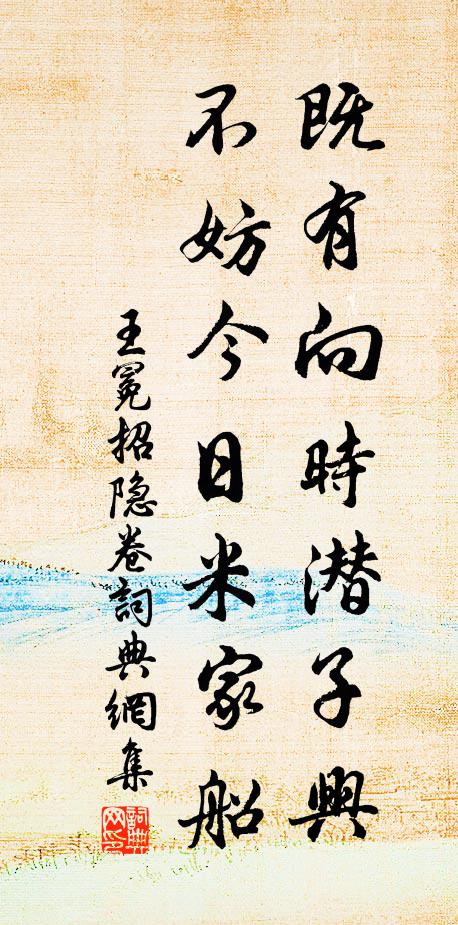 既有向時潜子興
不妨今日米家船
王冕招隐卷詞典網集
詞典网印